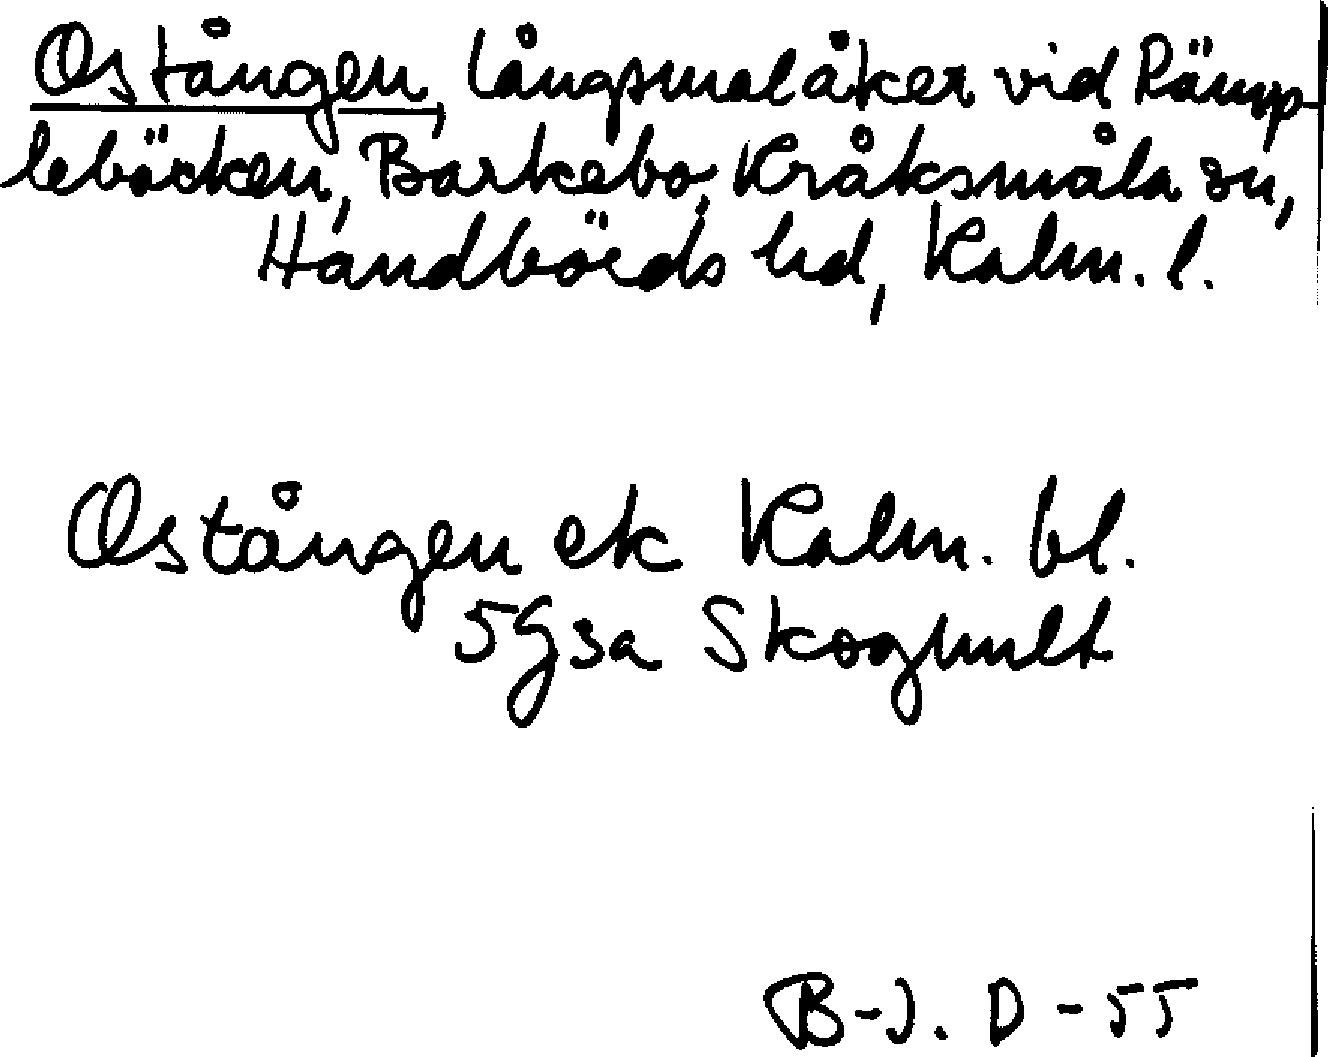 Ostången, långsmal åker vid Rämp-
lebäcken, Barkebo, Kråksmåla sn,
Handbörds hd, Kalm. l.
Ostången ek Kalm. bl.
5Gsa Skoghult
B-J. D -55